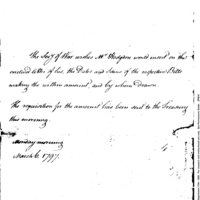 The Secy of War wishes Mr Hodgdon would insert on the
enclosed letter of his, the Dates and Sums of the respective Bills
making the within amount, and by whom drawn.
The requisition for the amount has been sent to the Treasury
this morning.
Monday morning
March 6. 1797.